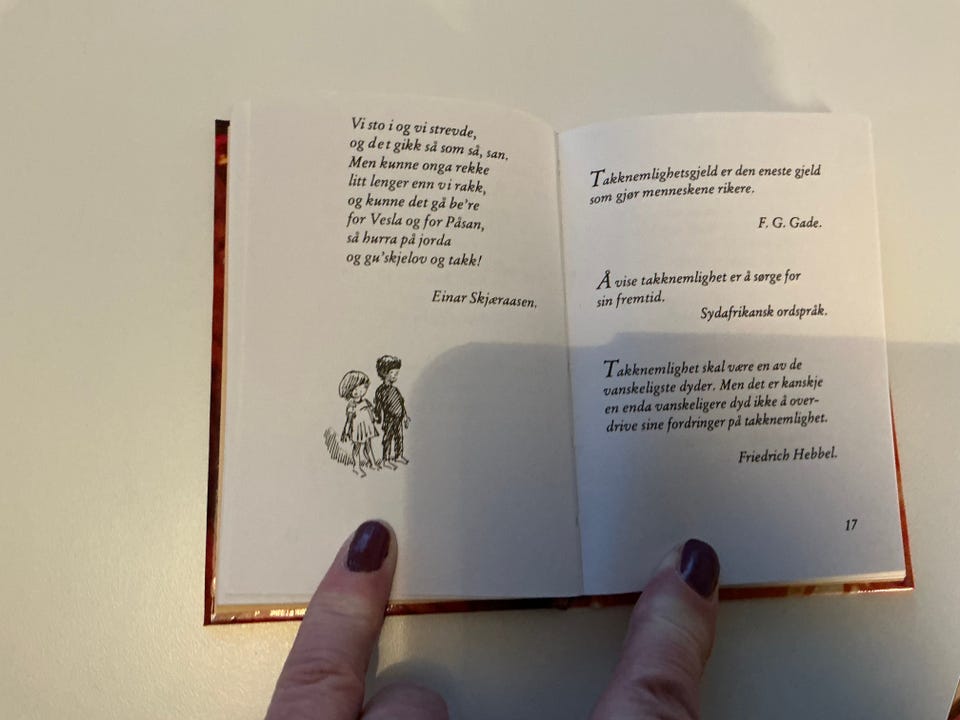 Vi sto i og vi strevde,
og det gikk så som så, san.
Men kunne onga rekke
litt lenger enn vi rakk,
og kunne det gå be're
for Vesla og for Påsan,
så hurra på jorda
og gu'skjelov og takk!
Einar Skjæraasen.
Takknemlighetsgjeld er den eneste gjeld
som gjør menneskene rikere.
F. G. Gade.
Å vise takknemlighet er å sørge for
sin fremtid.
Sydafrikansk ordspråk.
Takknemlighet skal være en av de
vanskeligste dyder. Men det er kanskje
en enda vanskeligere dyd ikke å over-
drive sine fordringer på takknemlighet.
Friedrich Hebbel.
17